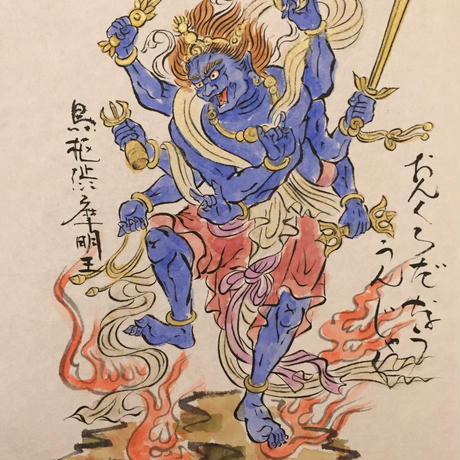 おんくろだなう
うんじゃく
烏枢渋摩明王